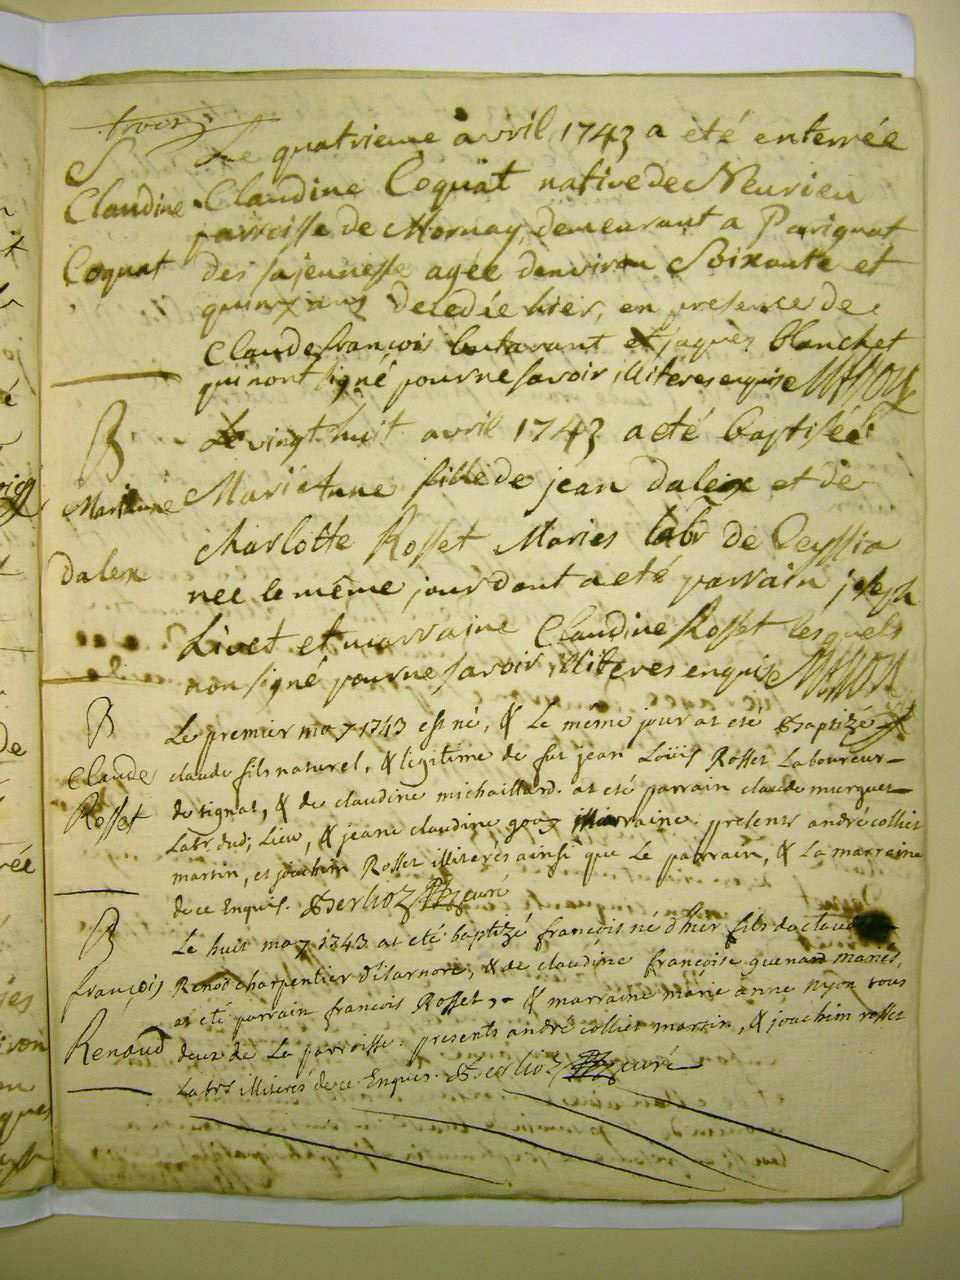 trois
S
Claudine
Coquat
Le quatrieme avril 1743 a eté enterrée
Claudine Coquät native de Neurieu
parroisse de Mornay, demeurant a Parignat
des sa jeunesse agée denviron Soixante et
quinz ans decedée hier, en presence de
Claude françois butavant et jaques blanchet
qui nont signé pour ne savoir, illiteres enquis
B
Marianne
Dalex
Le vingt huit avril 1743 a eté baptisée
Marie Anne fille de jean Dalex et de
Charlotte Rosset Mariés labr de Veyssia
née le même jour dont a eté parrain joseph
Livet et marraine Claudine Rosset lesquels
non signé pour ne savoir, illiteres enquis
B
Claude
Rosset
Le premier may 1743 est né, & Le même jour at eté Baptizé
claude fils naturel, & legitime de fut jean Loüis Rosset Laboureur
de signat, & de claudine michaillard. at eté parrain claude merguet
Labr dud; Lieu, & jeane claudine gouz marraine. presents andré collier
martin, et joachim Rosset illiterés ainsi que Le parrain, & La marraine
de ce Enquis. Berlioz curé
B
françois
Renoud
Le huit may 1743 at eté baptizé françois né d'hier fils de claude
Renod charpentier d'isarnore, & de claudine françoise guenard mariés,
at eté parrain françois Rosset, & marraine marie anne nyon tous
deux de La parroisse. presents andré collier martin, & joachim rosset
Labrs illiterés de ce Enquis. Berlioz curé